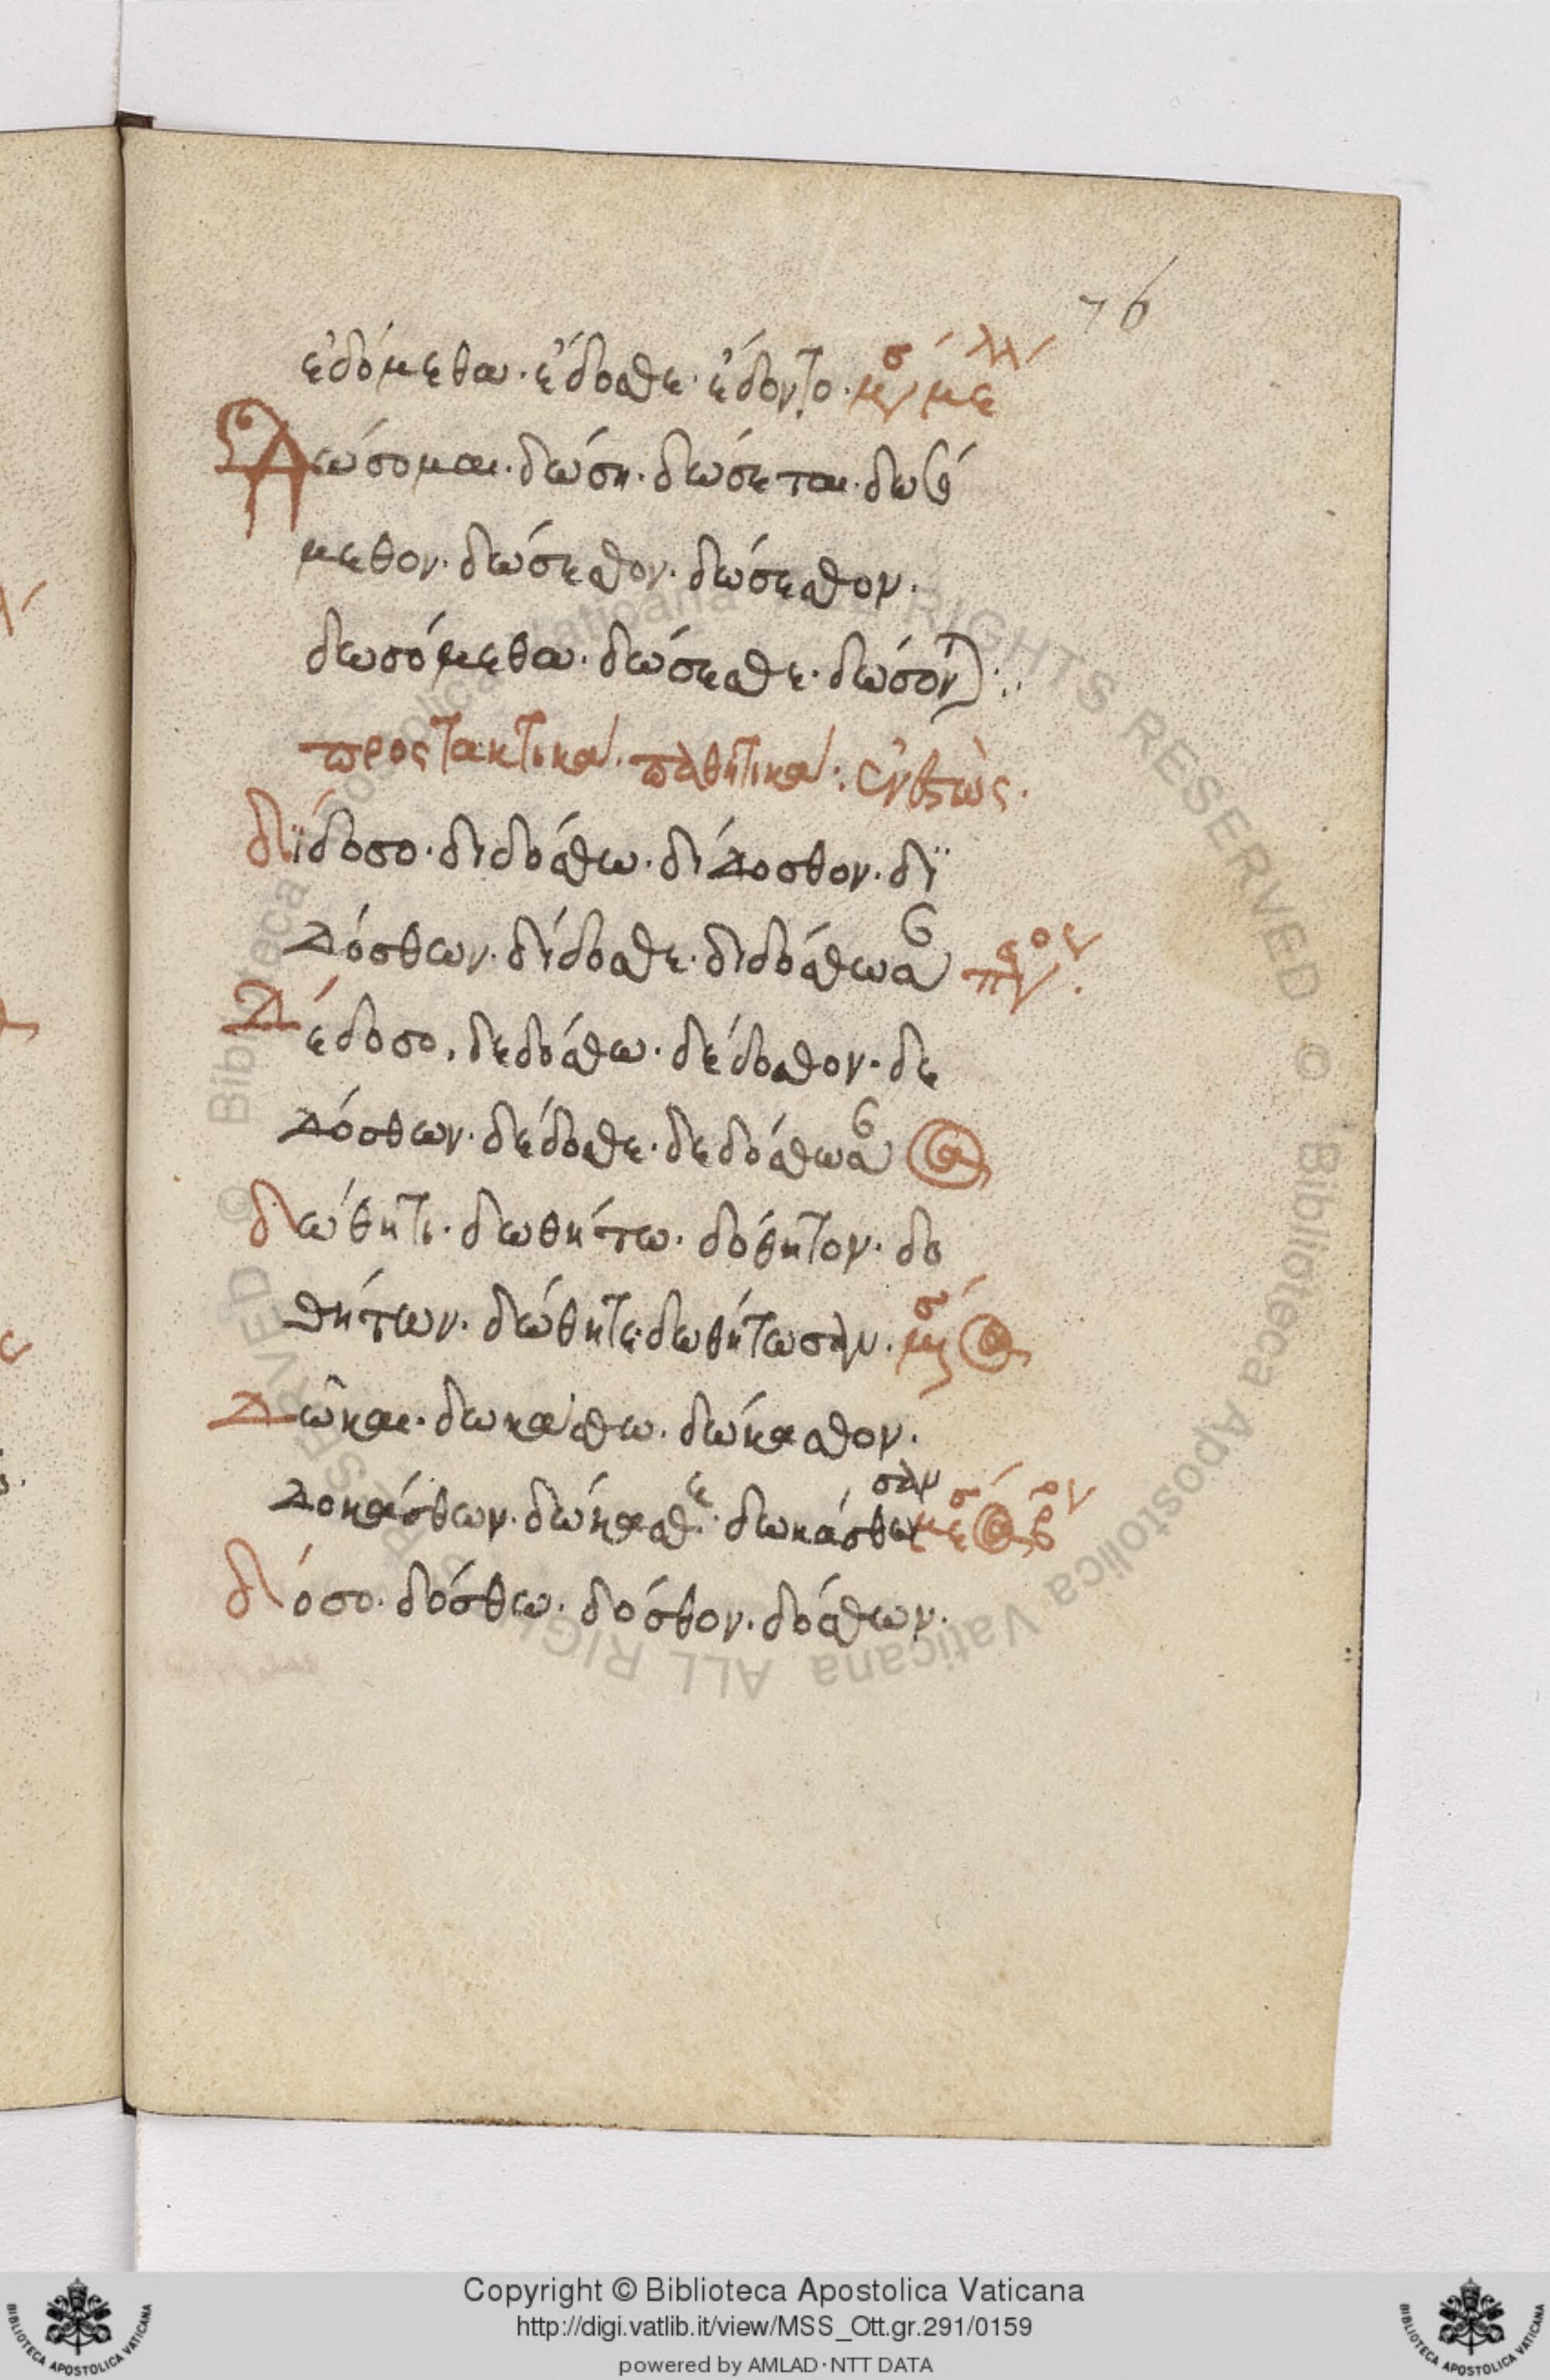 76
ἐδόμεθα· ἔδοσθε· ἔδοντο· μσ́ μελλ
Δώσομαι· δώση· δώσεται· δωσό
μεθον· δώσεσθον· δώσεσθον·
δωσόμεθα· δώσεσθε· δώσονται:
προςτακτικὰ· παθητικὰ: ἐνεστὼς·
δίδοσο· διδόσθω· δίδοσθον· δϊ
δόσθων· δίδοσθε· διδόσθωσαν
δέδοσο, δεδόσθω· δέδοσθον· δε
δόσθων· δέδοσθε· δεδόσθωσαν
δώθητι· δωθήτω· δόθητον· δο
θήτων· δώθητε· δωθήτωσαν·
Δῶκαι· δωκάσθω· δώκασθον·
δοκάσθων· δώκασθε· δωκάσθωσαν
δόσο· δόσθω· δόσθον· δόσθων·
Copyright © Biblioteca Apostolica Vaticana
http://digi.vatlib.it/view/MSS_Ott.gr.291/0159
powered by AMLAD·NTT DATA